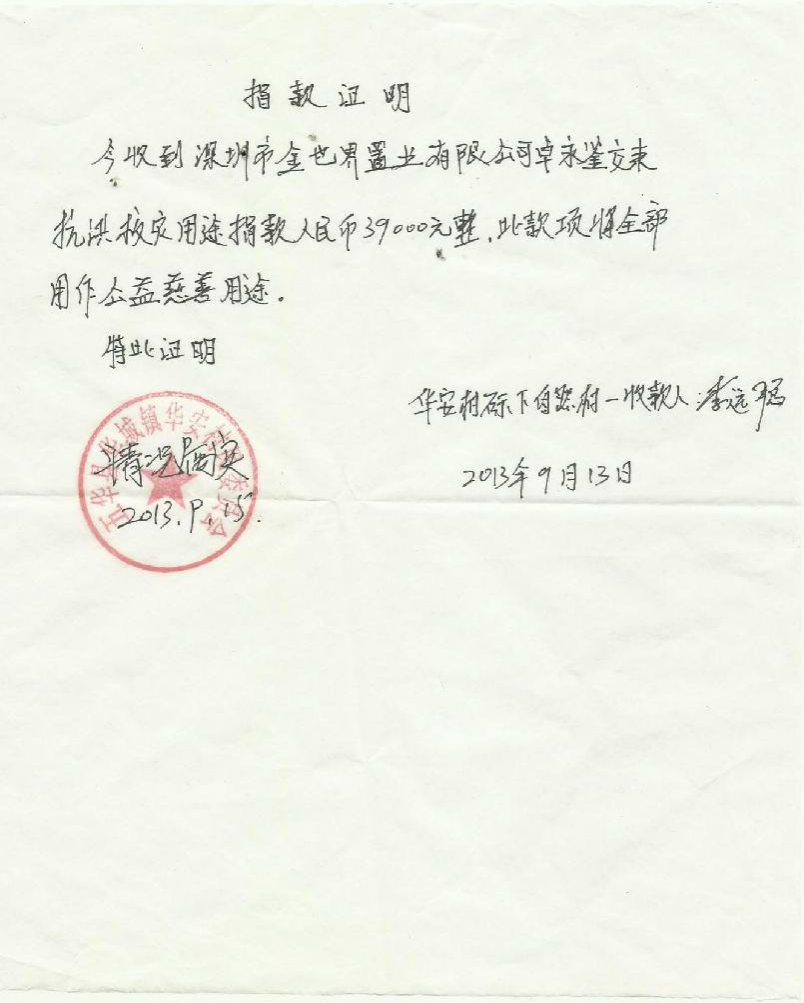 捐款证明
今收到深圳市金世界置业有限公司卓永鉴交来
抗洪救灾用途捐款人民币39000元整，此款项将全部
用作公益慈善用途。
特此证明
华安村砾下自然村－收款人：李远聪
2013年9月13日
五华县华城镇华安村民委员会
情况属实
2013.9.15.